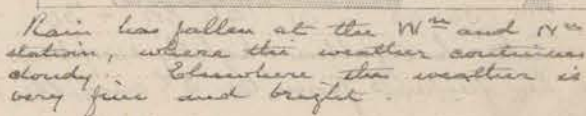 Rain has fallen at the Wⁿ and Nⁿ
station, where the weather continues
cloudy. Elsewhere the weather is
very fine and bright.